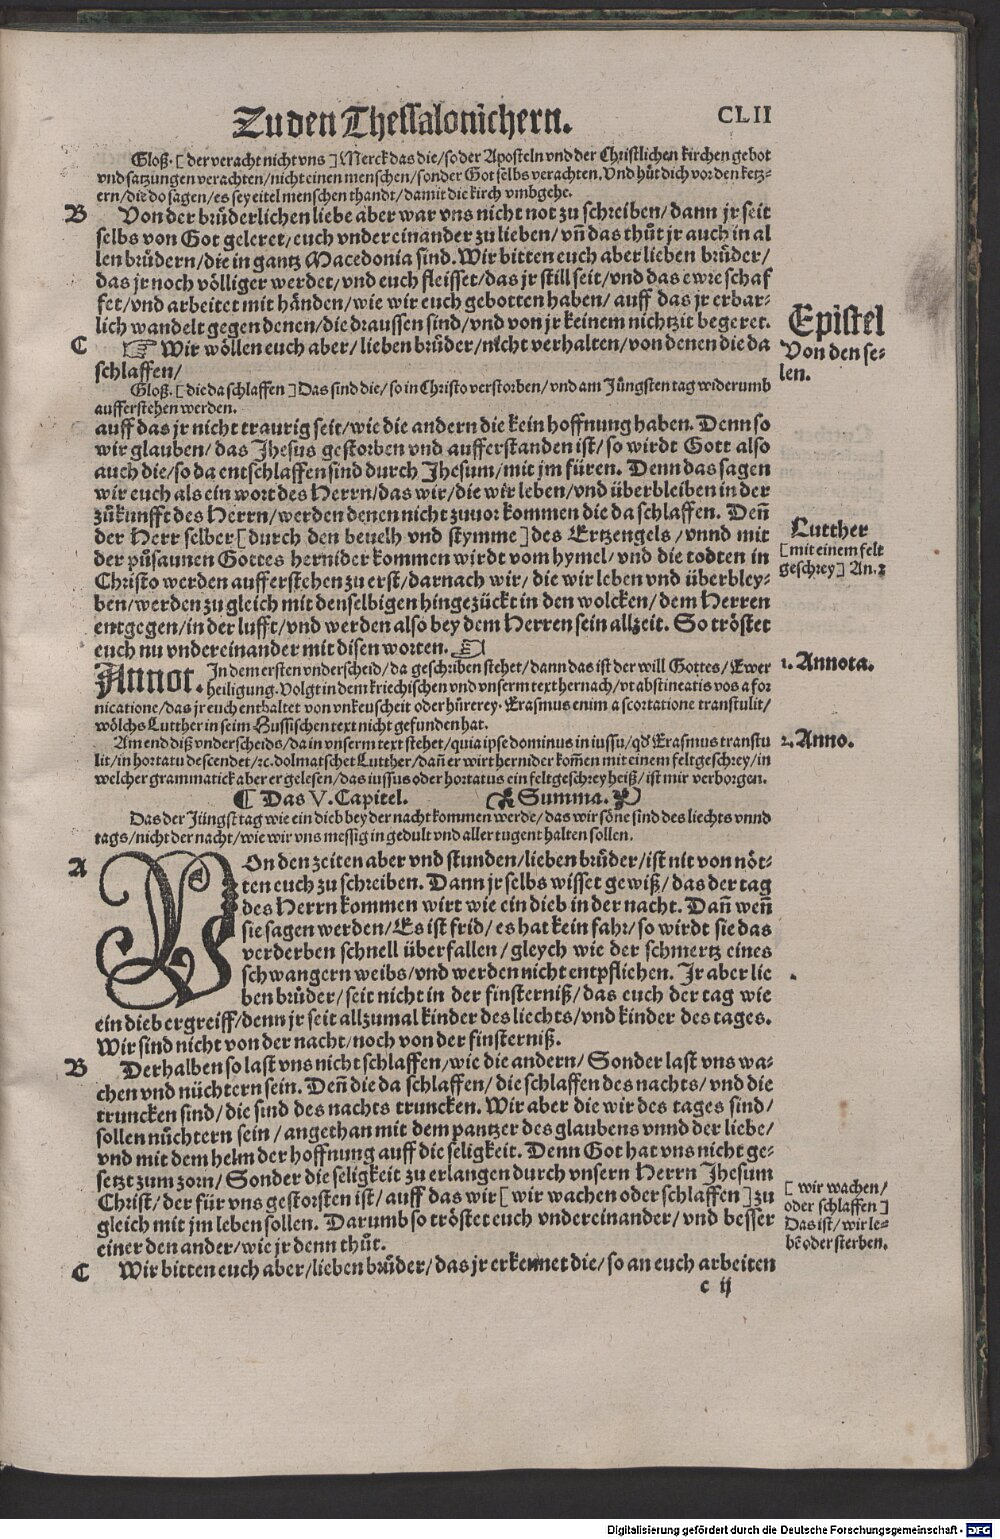 Zu den Thessalonichern.
CLII
Gloß. [der veracht nicht vns] Merck das die/so der Aposteln vnd der Christlichen kirchen gebot
vnd satzungen verachten/nicht einen menschen/sonder Got selbs verachten. Vnd hüt dich vor den ketz-
ern/die do sagen/es sey eitel menschen thandt/damit die kirch vmbgehe.
B Von der brůderlichen liebe aber war vns nicht not zu schreiben/dann jr seit
selbs von Got geleret/euch vndereinander zu lieben/vñ das thůt jr auch in al
len brůdern/die in gantz Macedonia sind. Wir bitten euch aber lieben brůder/
das jr noch völliger werdet/vnd euch fleisset/das jr still seit/vnd das ewre schaf
fet/vnd arbeitet mit händen/wie wir euch gebotten haben/auff das jr erbar-
lich wandelt gegen denen/die draussen sind/vnd von jr keinem nichtzit begeret.
Epistel
Von den se-
len.
C ☞ Wir wöllen euch aber/lieben brůder/nicht verhalten/von denen die da
schlaffen/
Gloß. [die da schlaffen] Das sind die/so in Christo verstorben/vnd am Jüngsten tag widerumb
aufferstehen werden.
auff das jr nicht traurig seit/wie die andern die kein hoffnung haben. Denn so
wir glauben/das Jhesus gestorben vnd aufferstanden ist/so wirdt Gott also
auch die/so da entschlaffen sind durch Jhesum/mit jm füren. Denn das sagen
wir euch als ein wort des Herrn/das wir/die wir leben/vnd überbleiben in der
zůkunfft des Herrn/werden denen nicht zuuor kommen die da schlaffen. Deñ
der Herr selber [durch den beuelh vnd stymme] des Ertzengels/vnnd mit
der půsaunen Gottes hernider kommen wirdt vom hymel/vnd die todten in
Christo werden aufferstehen zu erst/darnach wir/die wir leben vnd überbley-
ben/werden zu gleich mit denselbigen hingezückt in den wolcken/dem Herren
entgegen/in der lufft/vnd werden also bey dem Herren sein allzeit. So tröstet
euch nu vndereinander mit disen worten. ☜
Lutther
[mit einem felt
geschrey] An. 2
Annot. In dem ersten vnderscheid/da geschriben stehet/dann das ist der will Gottes/Ewer
heiligung. Volgt in dem kriechischen vnd vnserm text hernach/vt abstineatis vos a for
nicatione/das jr euch enthaltet von vnkeuscheit oder hürerey. Erasmus enim a scortatione transtulit/
wölchs Lutther in seim Hussischen text nicht gefunden hat.
1. Annota.
Am end diß vnderscheids/da in vnserm text stehet/quia ipse dominus in iussu/qd Erasmus transtu
lit/in hortatu descendet/rc. dolmatschet Lutther/dañ er wirt hernider kom̃en mit einem feltgeschrey/in
welcher grammatick aber er gelesen/das iussus oder hortatus ein feltgeschrey heiß/ist mir verborgen.
2. Anno.
¶ Das V. Capitel. Summa.
Das der Jüngst tag wie ein dieb bey der nacht kommen werde/das wir söne sind des liechts vnnd
tags/nicht der nacht/wie wir vns messig in gedult vnd aller tugent halten sollen.
A VOn den zeiten aber vnd stunden/lieben brůder/ist nit von nöt-
ten euch zu schreiben. Dann jr selbs wisset gewiß/das der tag
des Herrn kommen wirt wie ein dieb in der nacht. Dañ weñ
sie sagen werden/Es ist frid/es hat kein fahr/so wirdt sie das
verderben schnell überfallen/gleych wie der schmertz eines
schwangern weibs/vnd werden nicht entpfliehen. Ir aber lie
ben brůder/seit nicht in der finsterniß/das euch der tag wie
ein dieb ergreiff/denn jr seit allzumal kinder des liechts/vnd kinder des tages.
Wir sind nicht von der nacht/noch von der finsterniß.
B Derhalben so last vns nicht schlaffen/wie die andern/Sonder last vns wa-
chen vnd nüchtern sein. Deñ die da schlaffen/die schlaffen des nachts/vnd die
truncken sind/die sind des nachts truncken. Wir aber die wir des tages sind/
sollen nüchtern sein/angethan mit dem pantzer des glaubens vnnd der liebe/
vnd mit dem helm der hoffnung auff die seligkeit. Denn Got hat vns nicht ge-
setzt zum zorn/Sonder die seligkeit zu erlangen durch vnsern Herrn Jhesum
Christ/der für vns gestorsten ist/auff das wir [wir wachen oder schlaffen] zu
gleich mit jm leben sollen. Darumb so tröstet euch vndereinander/vnd besser
einer den ander/wie jr denn thůt.
[wir wachen/
oder schlaffen]
Das ist/wir le-
bē oder sterben.
C Wir bitten euch aber/lieben brůder/das jr erkennet die/so an euch arbeiten
c ij
Digitalisierung gefördert durch die Deutsche Forschungsgemeinschaft - DFG